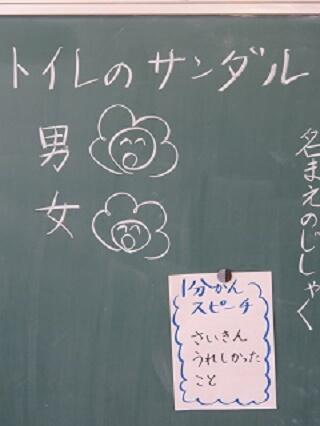 トイレのサンダル
男
女
名まえのじしゃく
1分かん
スピーチ
さいきん
うれしかった
こと